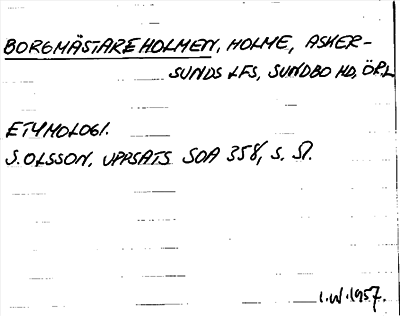 BORGMÄSTAREHOLMEN, HOLME, ASKER-
SUNDS LFS, SUNDBO HD, ÖR.L
ETYMOLOGI.
S. OLSSON, UPPSATS SOA 358, S. 51.
I.W. 1957.